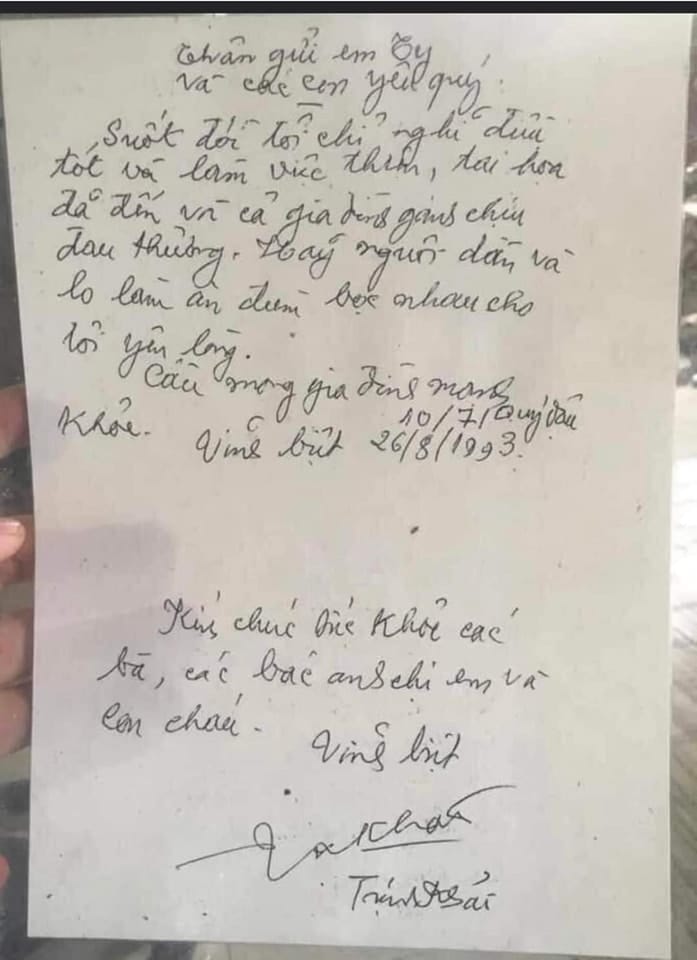 Thân gửi em Ty
và các con yêu quý.
Suốt đời tôi chỉ nghĩ điều
tốt và làm việc thiện, tai họa
đã đến và cả gia đình gánh chịu
đau thương. Hãy người dần và
lo làm ăn đùm bọc nhau cho
tôi yên lòng.
Cầu mong gia đình mạnh
khỏe. 10/7/Quý Dậu
Vĩnh biệt 26/8/1993.
Kính chúc sức khỏe các
bà, các bác anh chị em và
con cháu.
Vĩnh biệt
Khải
Trịnh Khải